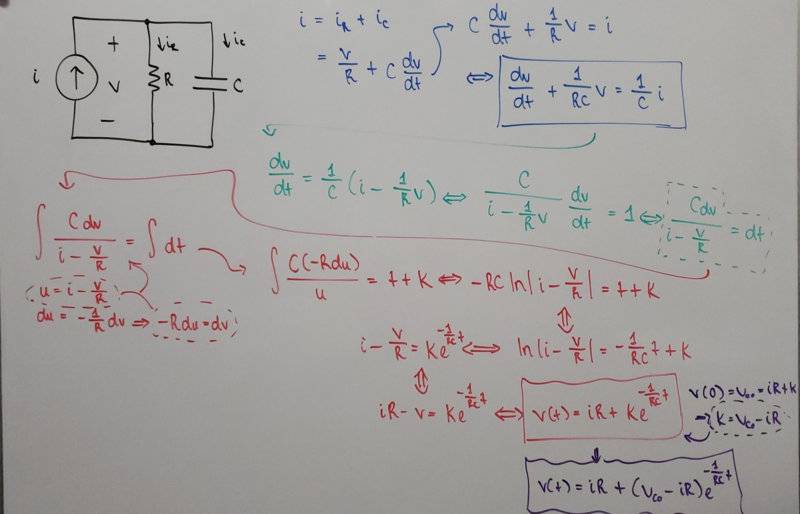 i + v - ↓i_R R ↓i_C C
i = i_R + i_C
= v/R + C dv/dt
C dv/dt + 1/R v = i
⇔ dv/dt + 1/RC v = 1/C i
dv/dt = 1/C (i - 1/R v) ⇔ C/(i - 1/R v) dv/dt = 1 ⇔ Cdv/(i - v/R) = dt
∫ Cdv/(i - v/R) = ∫ dt
u = i - v/R
du = -1/R dv ⇒ -Rdu = dv
∫ C(-Rdu)/u = t + K ⇔ -RC ln|i - v/R| = t + K
⇕
i - v/R = Ke^(-1/RC t) ⇔ ln|i - v/R| = -1/RC t + K
⇕
iR - v = Ke^(-1/RC t) ⇔ v(t) = iR + Ke^(-1/RC t)
v(0) = V_C0 = iR + K
⇒ K = V_C0 - iR
v(t) = iR + (V_C0 - iR)e^(-1/RC t)